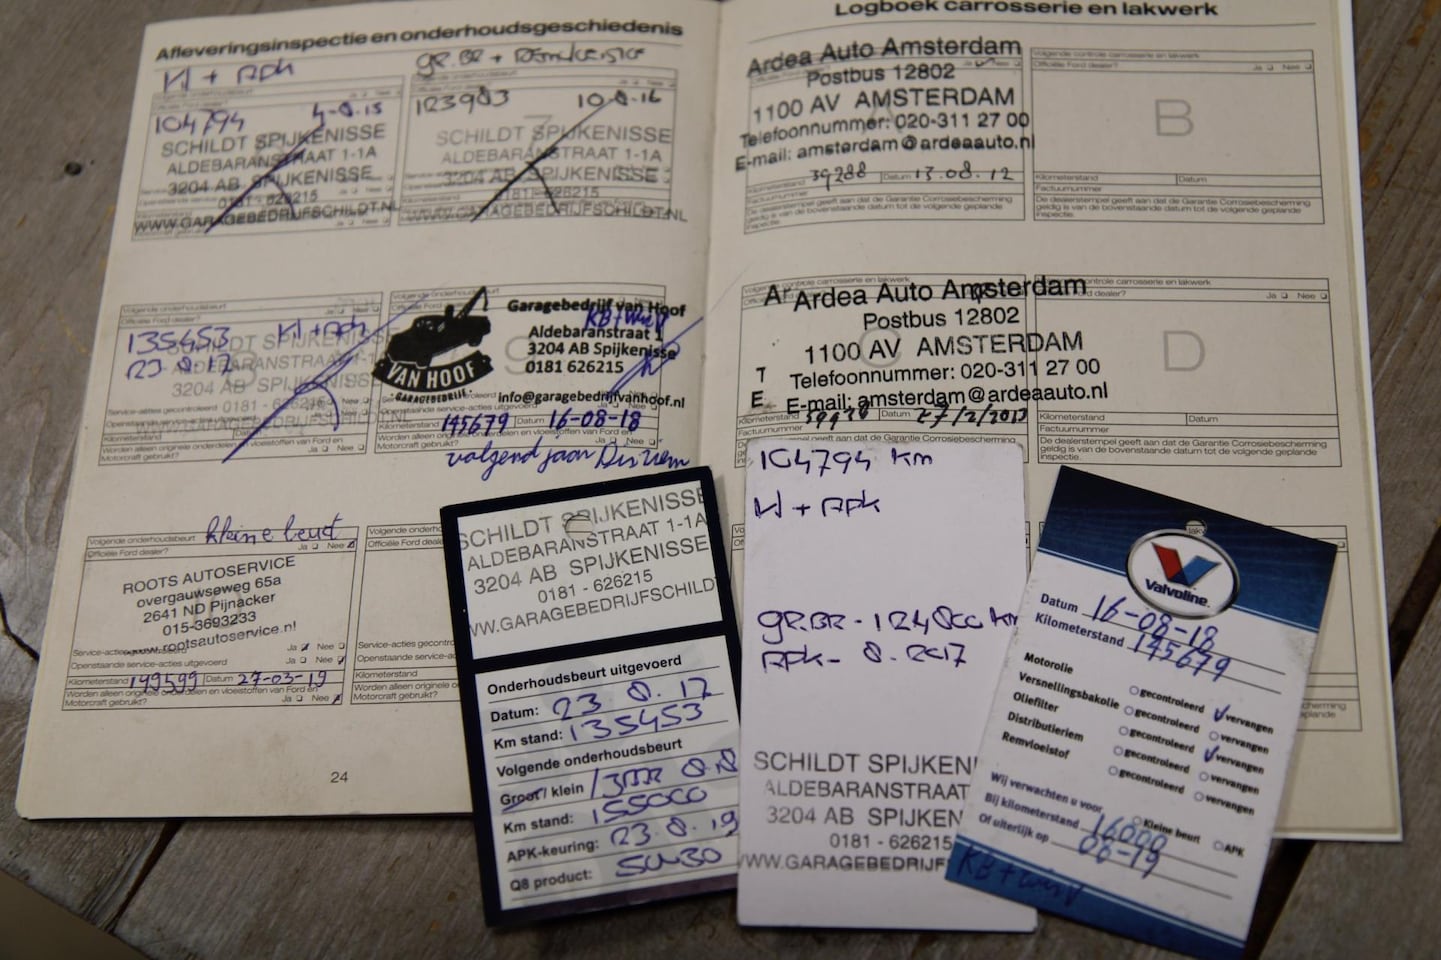 Afleveringsinspectie en onderhoudsgeschiedenis
Kl + APK
104794
4-8.15
SCHILDT SPIJKENISSE
ALDEBARANSTRAAT 1-1A
3204 AB SPIJKENISSE
0181 - 626215
WWW.GARAGEBEDRIJFSCHILDT.NL
GR.BR +
123903
10.8.16
SCHILDT SPIJKENISSE
ALDEBARANSTRAAT 1-1A
3204 AB SPIJKENISSE
0181 - 626215
WWW.GARAGEBEDRIJFSCHILDT.NL
Volgende onderhoudsbeurt
Officiële Ford dealer?
135453
Kl + APK
23.8.17
Garagebedrijf van Hoof
Aldebaranstraat 1
3204 AB Spijkenisse
0181 626215
VAN HOOF
GARAGEBEDRIJF
info@garagebedrijfvanhoof.nl
Kilometerstand 145679 Datum 16-08-18
Worden alleen originele onderdelen en vloeistoffen van Ford en
Motorcraft gebruikt? Ja Nee
volgend jaar Dis riem
Volgende onderhoudsbeurt kleine beurt
Officiële Ford dealer? Ja Nee
ROOTS AUTOSERVICE
overgauwseweg 65a
2641 ND Pijnacker
015-3693233
www.rootsautoservice.nl
Openstaande service-acties uitgevoerd Ja Nee
Kilometerstand 149599 Datum 27-03-19
Worden alleen originele onderdelen en vloeistoffen van Ford en
Motorcraft gebruikt? Ja Nee
24
Logboek carrosserie en lakwerk
Ardea Auto Amsterdam
Postbus 12802
1100 AV AMSTERDAM
Telefoonnummer: 020-311 27 00
E-mail: amsterdam@ardeaauto.nl
Kilometerstand 39288 Datum 13.08.12
Factuurnummer
De dealerstempel geeft aan dat de Garantie Corrosiebescherming
geldig is van de bovenstaande datum tot de volgende geplande
inspectie.
Volgende controle carrosserie en lakwerk
Officiële Ford dealer? Ja Nee
B
Kilometerstand Datum
Factuurnummer
De dealerstempel geeft aan dat de Garantie Corrosiebescherming
geldig is van de bovenstaande datum tot de volgende geplande
inspectie.
Ardea Auto Amsterdam
Postbus 12802
1100 AV AMSTERDAM
Telefoonnummer: 020-311 27 00
E-mail: amsterdam@ardeaauto.nl
C
Datum 27/2/2013
Factuurnummer
De dealerstempel geeft aan dat de Garantie Corrosiebescherming
geldig is van de bovenstaande datum tot de volgende geplande
inspectie.
Ja Nee
D
Kilometerstand Datum
Factuurnummer
De dealerstempel geeft aan dat de Garantie Corrosiebescherming
geldig is van de bovenstaande datum tot de volgende geplande
inspectie.
SCHILDT SPIJKENISSE
ALDEBARANSTRAAT 1-1A
3204 AB SPIJKENISSE
0181 - 626215
WW.GARAGEBEDRIJFSCHILDT
Onderhoudsbeurt uitgevoerd
Datum: 23 8.17
Km stand: 135453
Volgende onderhoudsbeurt
Groot / klein
Km stand: 155000
APK-keuring: 23.8.19
Q8 product: 5W30
104794 Km
Kl + APK
GR.BR - 124800 Km
APK - 8.2017
SCHILDT SPIJKEN
ALDEBARANSTRAAT
3204 AB SPIJKEN
0181 - 626215
WWW.GARAGEBEDRIJF
Valvoline
Datum 16-08-18
Kilometerstand 145679
Motorolie gecontroleerd vervangen
Versnellingsbakolie gecontroleerd vervangen
Oliefilter gecontroleerd vervangen
Distributieriem gecontroleerd vervangen
Remvloeistof gecontroleerd vervangen
Wij verwachten u voor Kleine beurt APK
Bij kilometerstand 16000
Of uiterlijk op 08-19